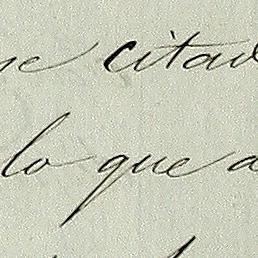 citad
lo que a